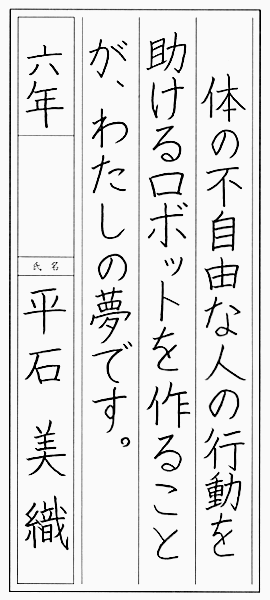 体の不自由な人の行動を
助けるロボットを作ること
が、わたしの夢です。
六年
氏名
平石 美織